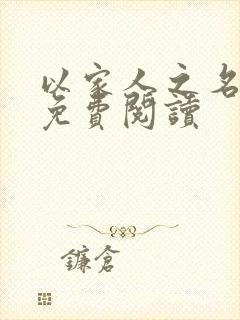 以家人之名
免費閱讀
鐮倉